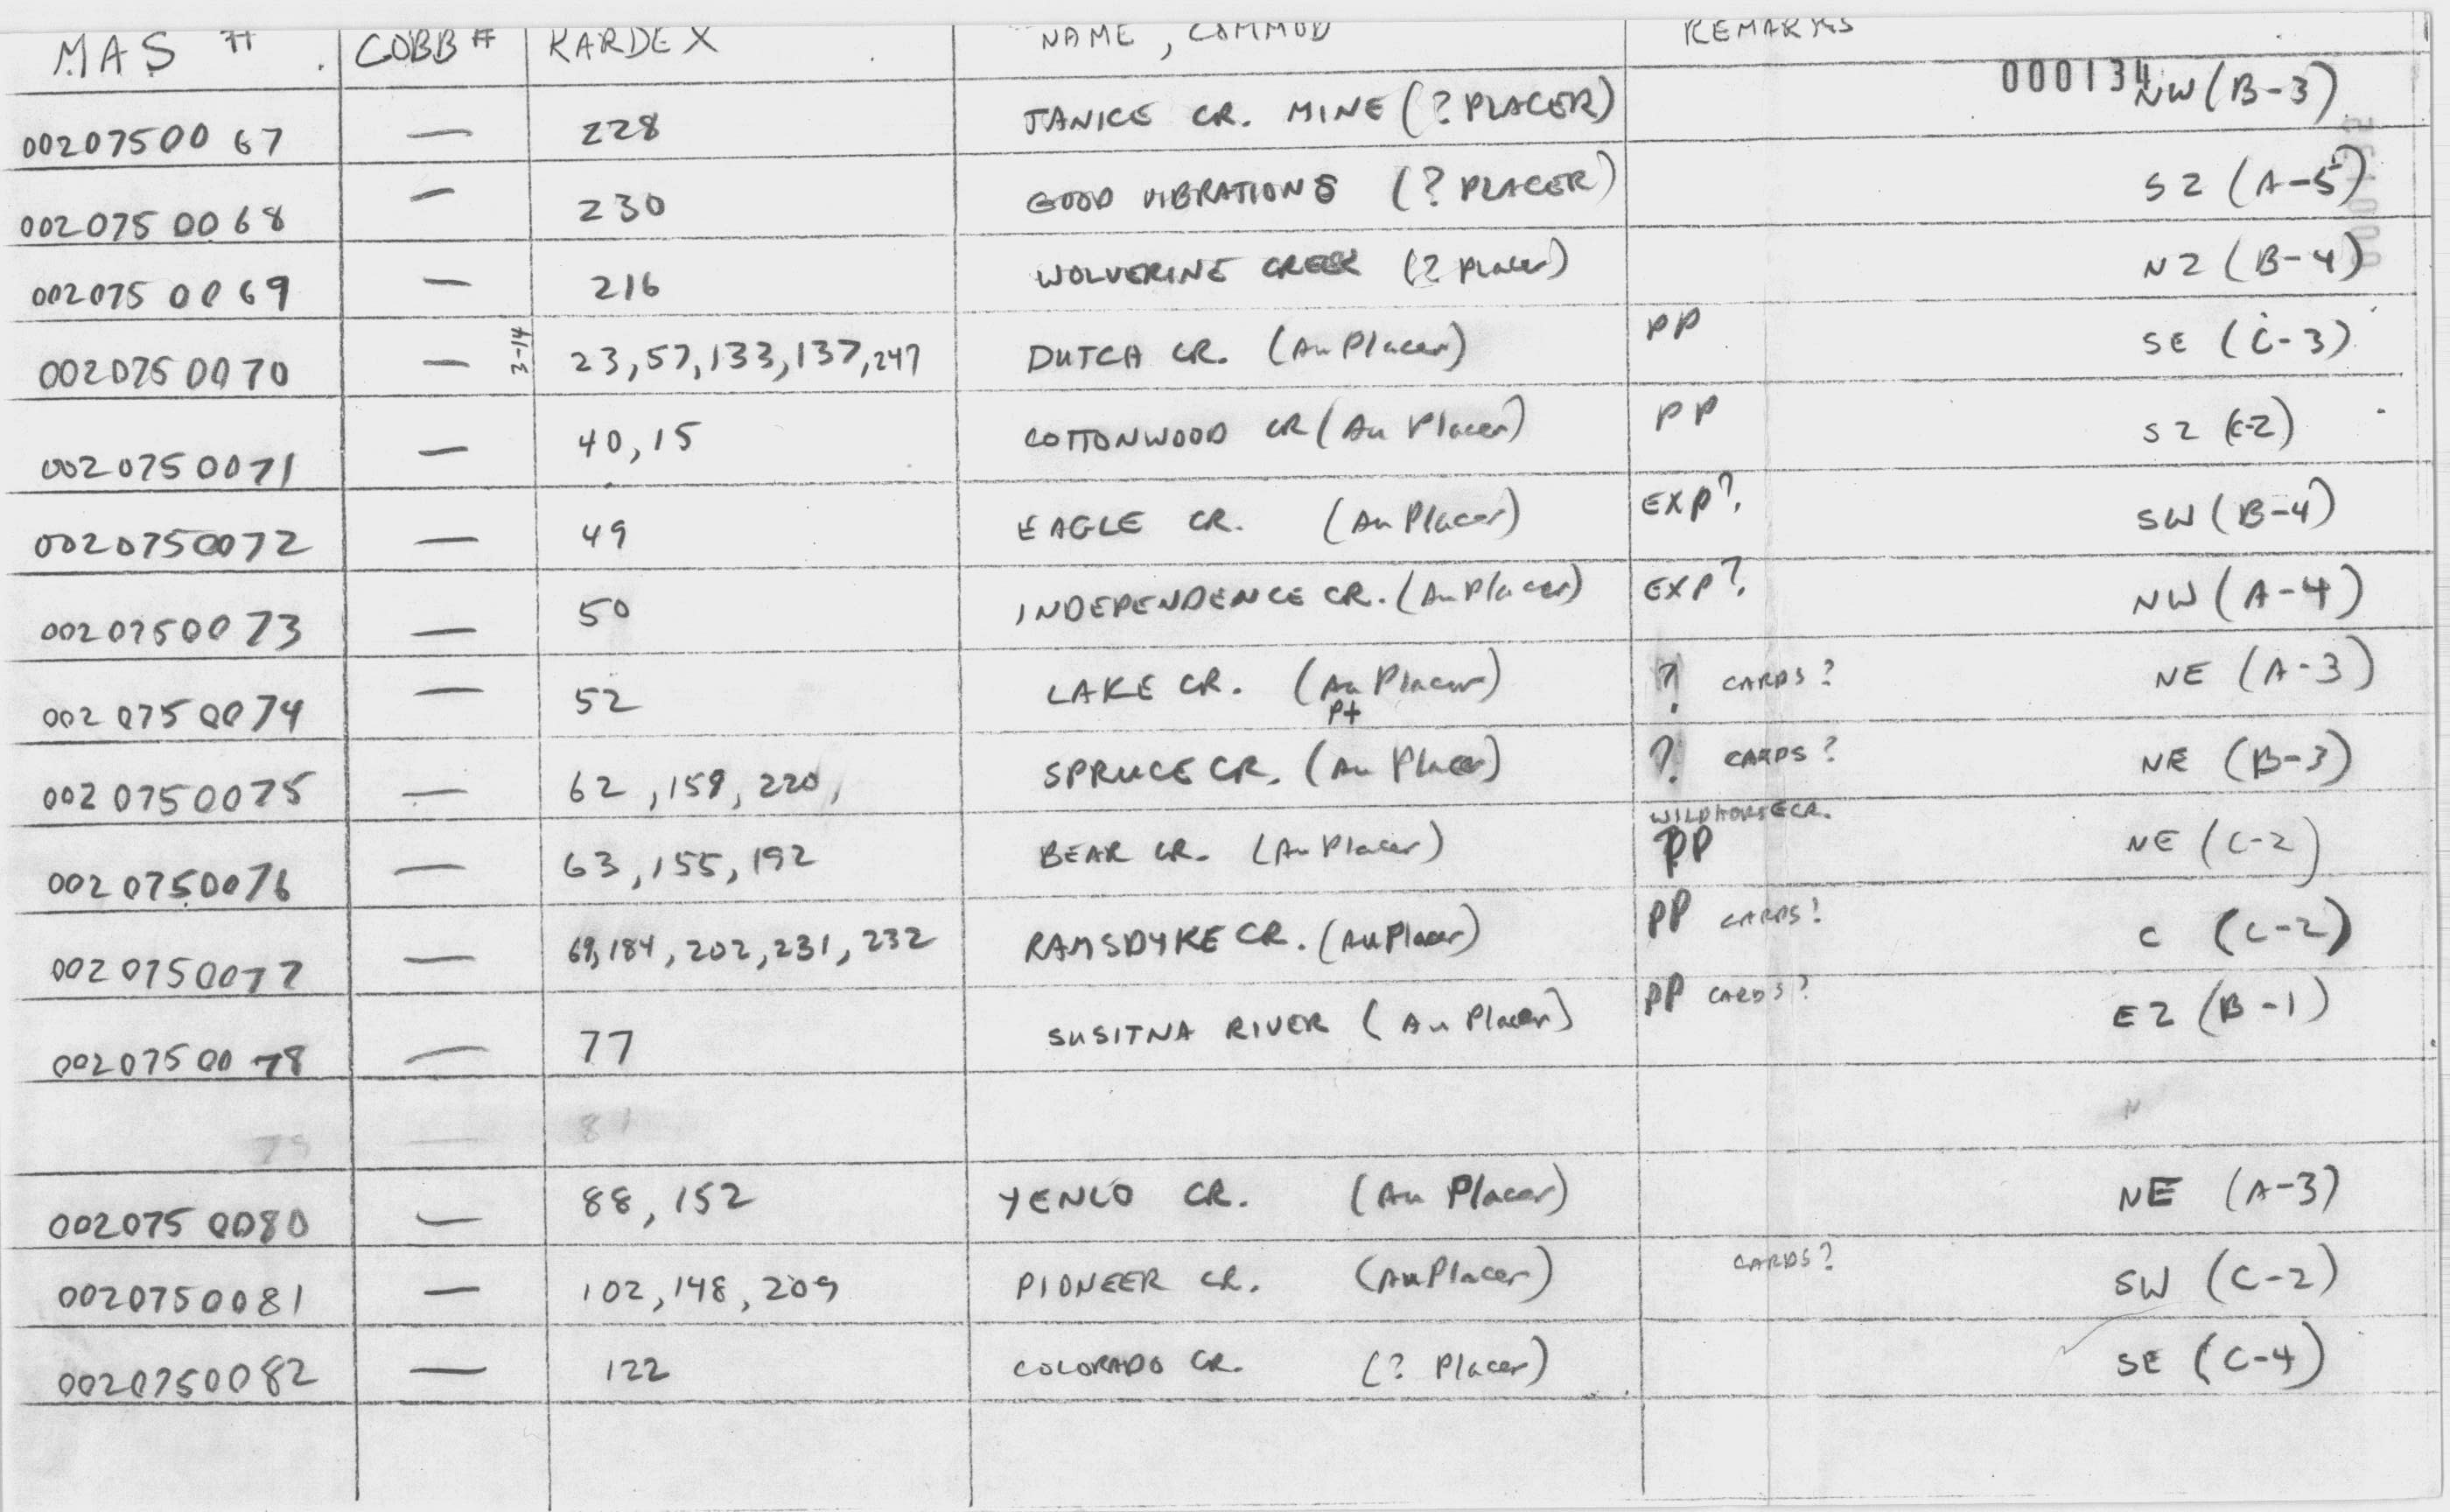 MAS # COBB # KARDEX NAME, COMMOD REMARKS
000134
0020750067 — 228 JANICE CR. MINE (? PLACER) NW (B-3)
0020750068 — 230 GOOD VIBRATIONS (? PLACER) S2 (A-5)
0020750069 — 216 WOLVERINE CREEK (? Placer) N2 (B-4)
0020750070 — 3-14 23, 57, 133, 137, 247 DUTCH CR. (Au Placer) PP SE (C-3)
0020750071 — 40, 15 COTTONWOOD CR (Au Placer) PP S2 (C-2)
0020750072 — 49 EAGLE CR. (Au Placer) EXP? SW (B-4)
0020750073 — 50 INDEPENDENCE CR. (Au Placer) EXP? NW (A-4)
0020750074 — 52 LAKE CR. (Au Placer) ? CARDS? NE (A-3)
Pt
0020750075 — 62, 158, 220, SPRUCE CR. (Au Placer) ? CARDS? NE (B-3)
WILDHORSE CR.
0020750076 — 63, 155, 192 BEAR CR. (Au Placer) PP NE (C-2)
0020750077 — 69, 184, 202, 231, 232 RAMSDYKE CR. (Au Placer) PP CARDS? C (C-2)
0020750078 — 77 SUSITNA RIVER (Au Placer) PP CARDS? E2 (B-1)
79 — 81 N
0020750080 — 88, 152 YENLO CR. (Au Placer) NE (A-3)
0020750081 — 102, 148, 209 PIONEER CR. (Au Placer) CARDS? SW (C-2)
0020750082 — 122 COLORADO CR. (? Placer) SE (C-4)